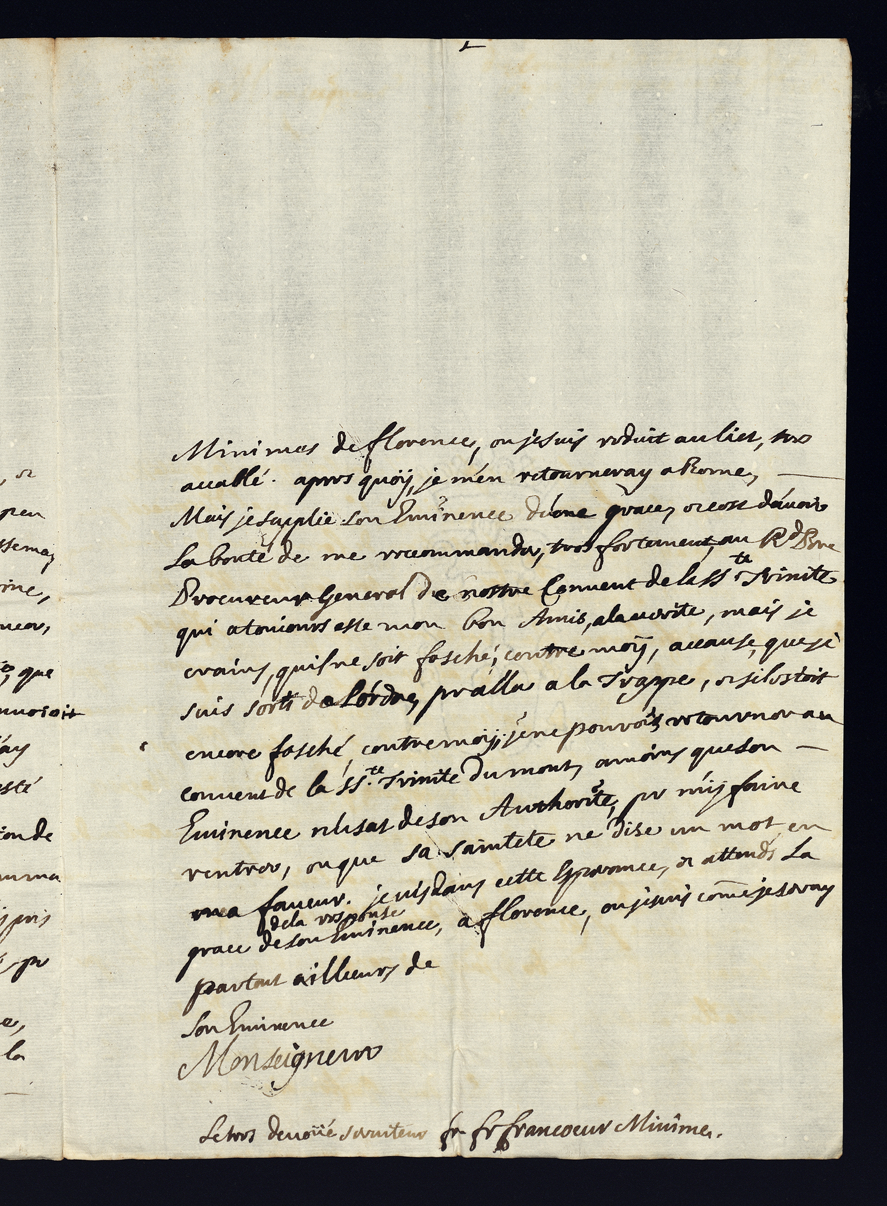 , de
peu
ssema,
oine,
ncor,
, que
ay
esté
ion de
pris
pr
e,
la
Minimes de florence, ou je suis reduit au lict, tres
accablé. apres quoÿ, je m'en retourneray a Rome,
Mais je suplie son Eminence d'une grace, et c'est d'avoir
La bonté de me recommander, tres fortement, au Rd Pere
Procureur General De nostre Convent de la SSte Trinité
qui a touiours esté mon bon Amis, a la verité, mais je
crains, qu'il ne soit fasché, contre moÿ, a cause, que je
suis sorti de L'ordre, pr aller a la Trappe, et s'il estoit
encore fasché, contre moÿ, je ne pourrois retourner au
convent de la SSte Trinité Du mont, a moins que son
Eminence n'usat de son Authorité, pr m'ÿ faire
rentrer, ou que sa sainteté ne Dise un mot en
ma faveur. je vis dans cette Esperance, et attends La
de la response
grace de son Eminence, a florence, ou je suis come je seray
partout ailleurs de
Son Eminence
Monseigneur
Le tres devoüé serviteur fr francoeur Minime.